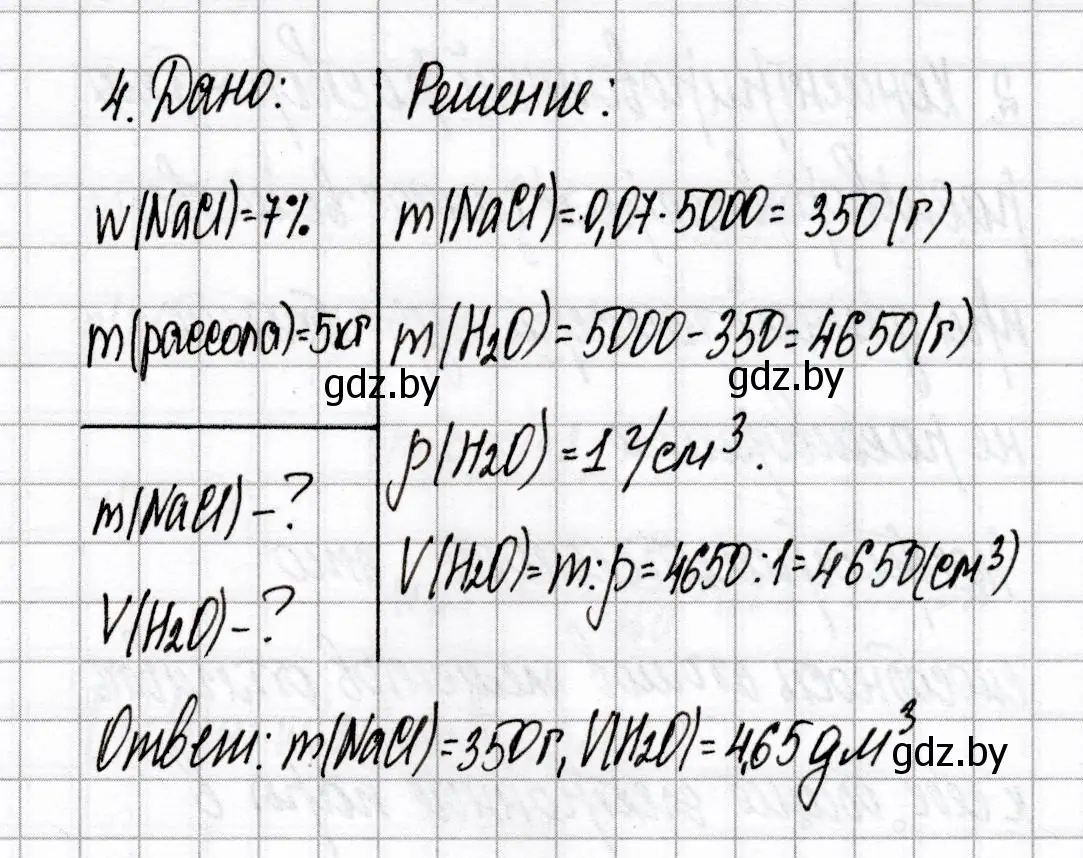 4. Дано:
w(NaCl)=7%
m(рассола)=5кг
m(NaCl) - ?
V(H2O) - ?
Решение:
m(NaCl)=0,07·5000= 350(г)
m(H2O)=5000-350=4650(г)
ρ(H2O)=1 г/см³.
V(H2O)=m:ρ=4650:1=4650(см³)
Ответ: m(NaCl)=350г, V(H2O)=4,65 дм³
gdz.by
gdz.by
gdz.by